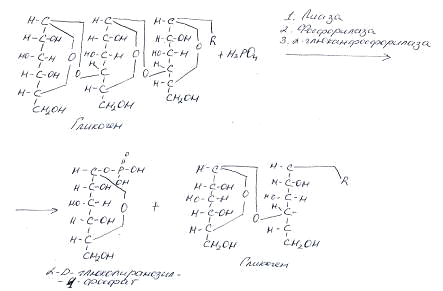 1. Лиаза
2. Фосфорилаза
3. α-глюканфосфорилаза
H-C H-C H-C R
H-C-OH H-C-OH H-C-OH O
HO-C-H O HO-C-H O HO-C-H O + H₃PO₄
H-C-OH H-C H-C
H-C O H-C O H-C
CH₂OH CH₂OH CH₂OH
Гликоген
O
H-C-O-P-OH H-C H-C
H-C-OH OH H-C-OH H-C-OH R
HO-C-H O + HO-C-H O O HO-C-H
H-C-OH H-C-OH H-C
H-C H-C O H-C
CH₂OH CH₂OH CH₂OH
α-D-глюкопиранозил-
-1-фосфат
Гликоген